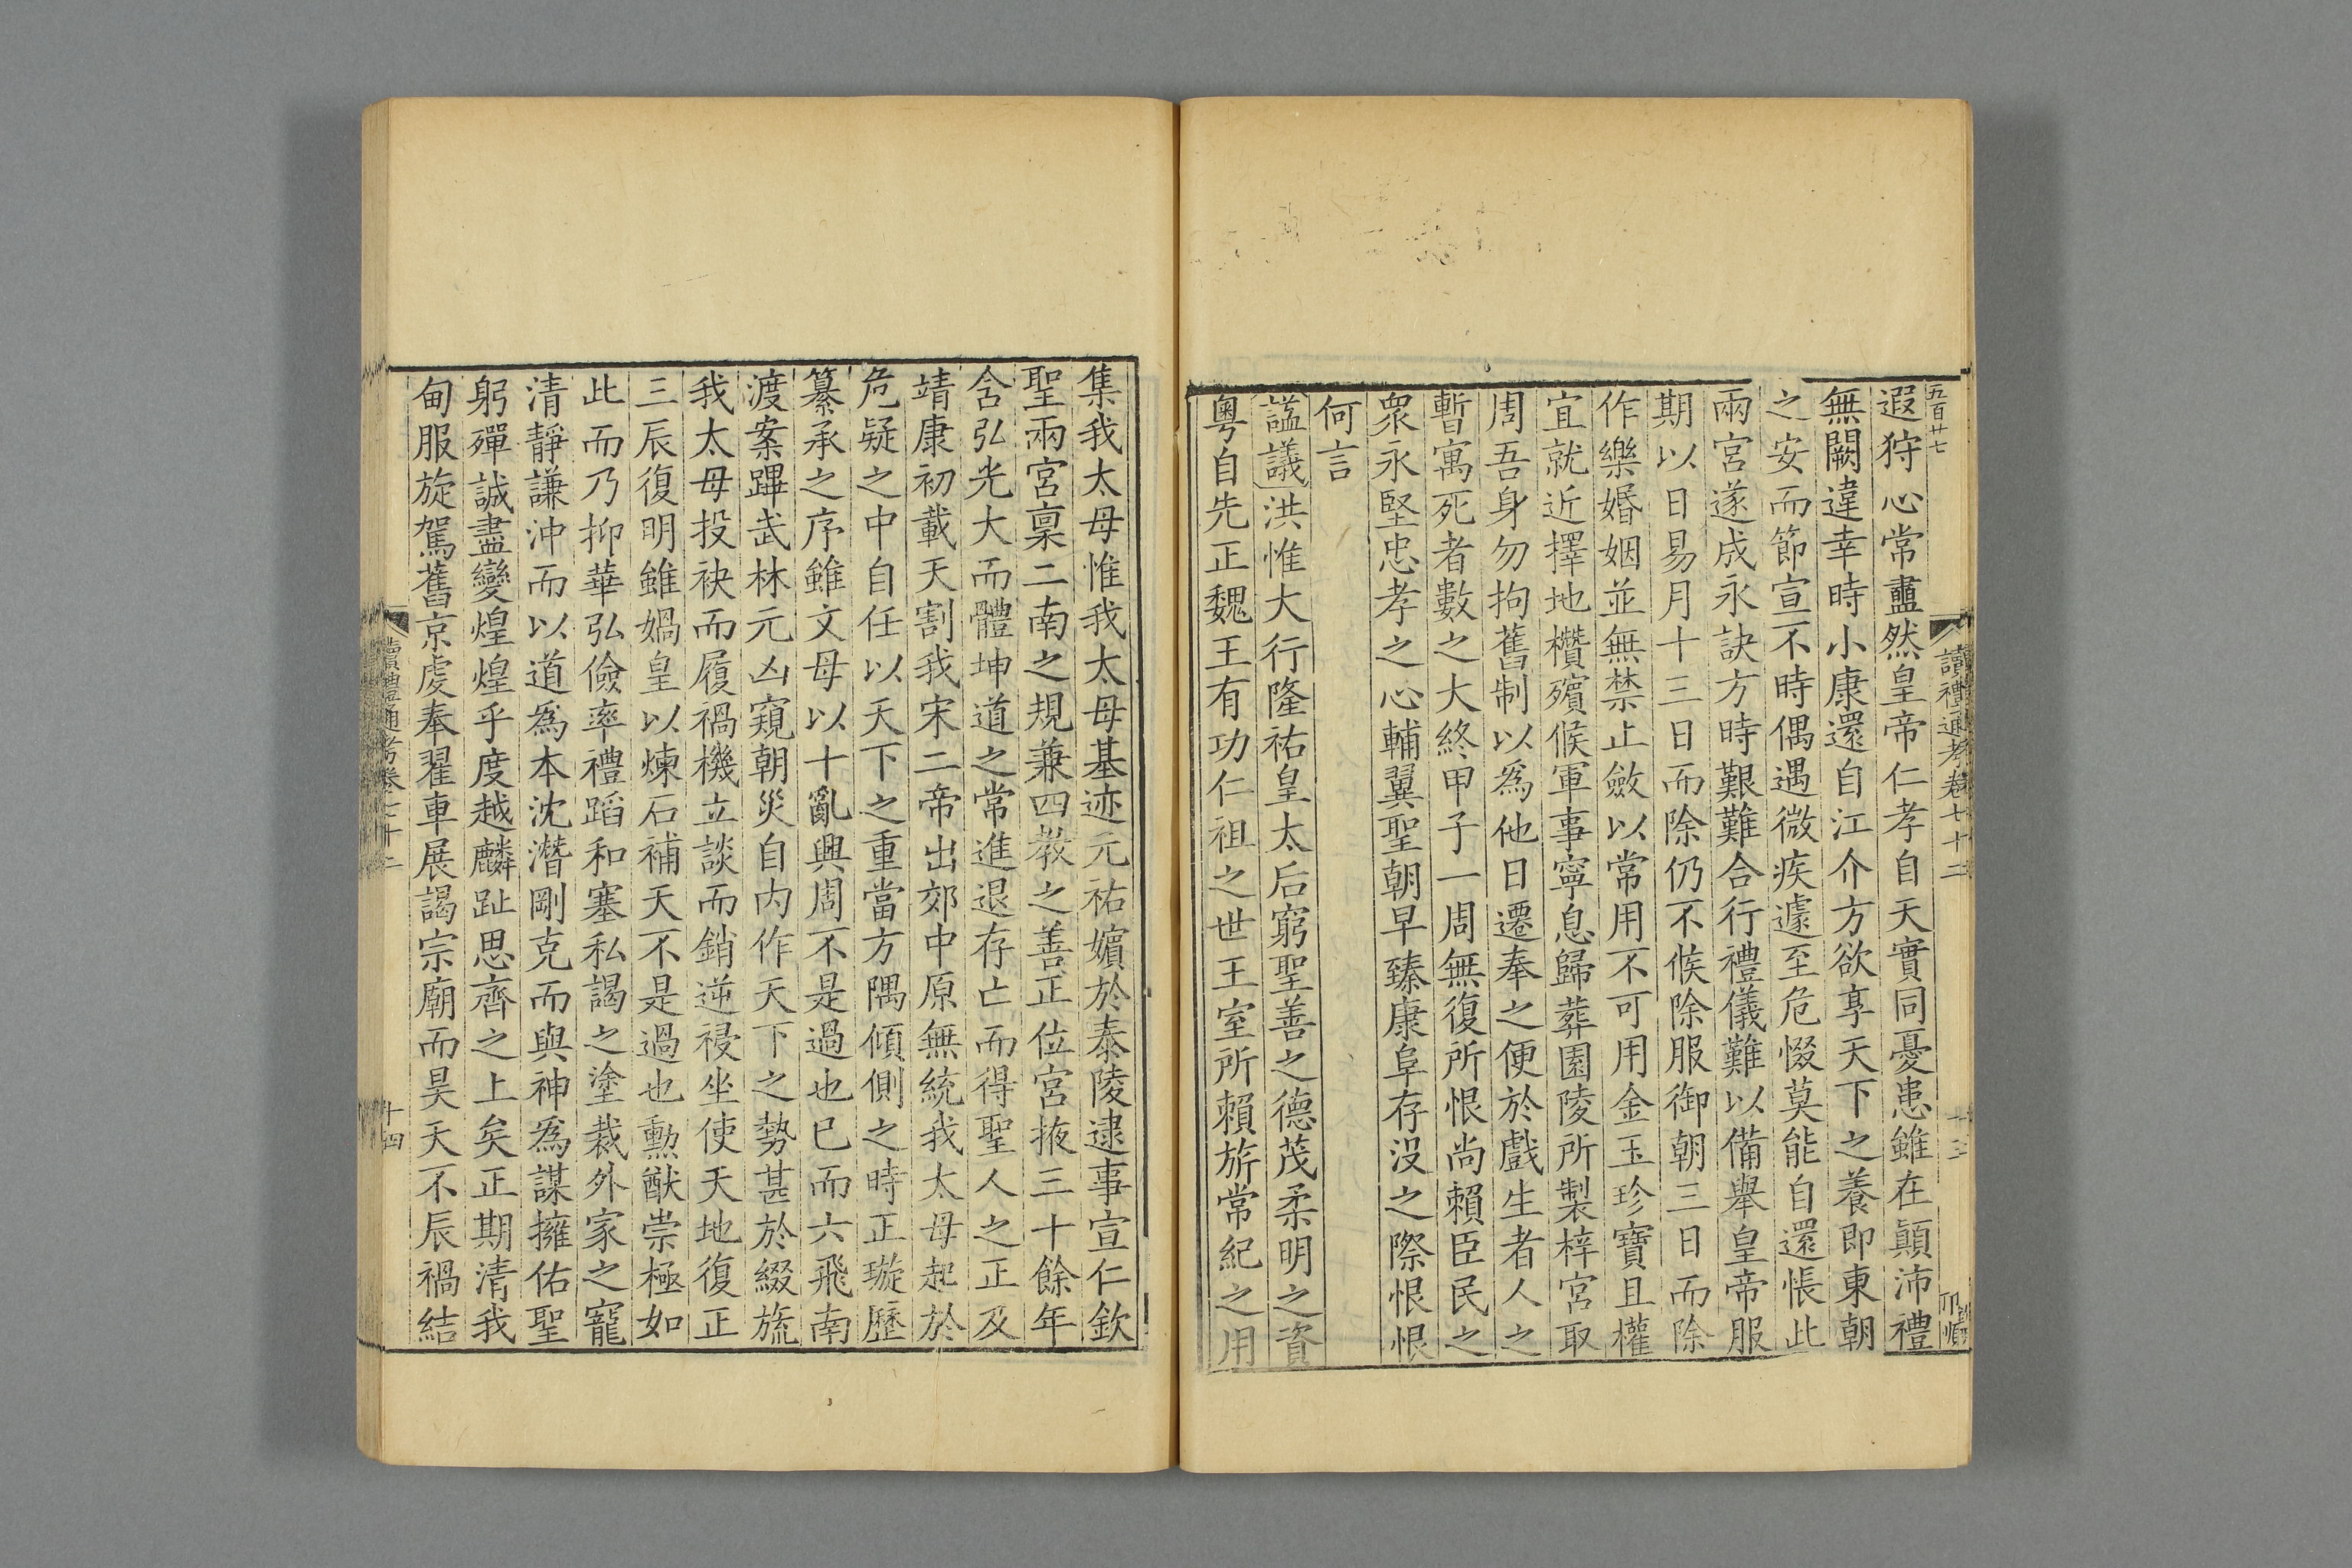 五百廿七
讀禮通考卷七十二
十三
遐狩心常衋然皇帝仁孝自天實同憂患雖在顛沛禮
無闕違幸時小康還自江介方欲享天下之養即東朝
之安而節宣不時偶遇微疾遽至危惙莫能自還悵此
兩宮遂成永訣方時艱難合行禮儀難以備舉皇帝服
期以日易月十三日而除仍不候除服御朝三日而除
作樂婚姻並無禁止斂以常用不可用金玉珍寶且權
宜就近擇地欑殯候軍事寧息歸葬園陵所製梓宮取
周吾身勿拘舊制以爲他日遷奉之便於戲生者人之
暫寓死者數之大終甲子一周無復所恨尚賴臣民之
衆永堅忠孝之心輔翼聖朝早臻康阜存没之際恨恨
何言
諡議洪惟大行隆祐皇太后窮聖善之德茂柔明之資
粵自先正魏王有功仁祖之世王室所賴旂常紀之用
集我太母惟我太母基迹元祐嬪於泰陵逮事宣仁欽
聖兩宮稟二南之規兼四教之善正位宮掖三十餘年
含弘光大而體坤道之常進退存亡而得聖人之正及
靖康初載天割我宋二帝出郊中原無統我太母起於
危疑之中自任以天下之重當方隅傾側之時正璇歷
纂承之序雖文母以十亂興周不是過也已而六飛南
渡案蹕武林元凶窺朝災自内作天下之勢甚於綴旒
我太母投袂而履禍機立談而銷逆祲坐使天地復正
三辰復明雖媧皇以煉石補天不是過也勲猷崇極如
此而乃抑華弘儉率禮蹈和塞私謁之塗裁外家之寵
清靜謙沖而以道爲本沈潛剛克而與神爲謀擁佑聖
躬殫誠盡變煌煌乎度越麟趾思齊之上矣正期清我
甸服旋駕舊京虔奉翟車展謁宗廟而昊天不辰禍結
讀禮通考卷七十二
十四